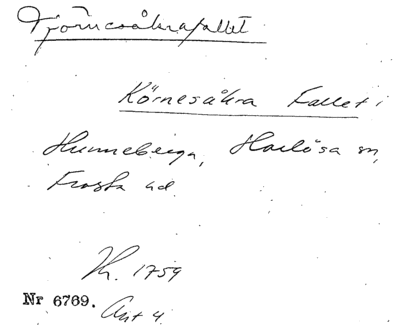 Tjörnesåkrafallet
Körnesåkra Fallet i
Hunneberga, Harlösa sn,
Frosta hd
Kh. 1759
Nr 6769. Akt 4